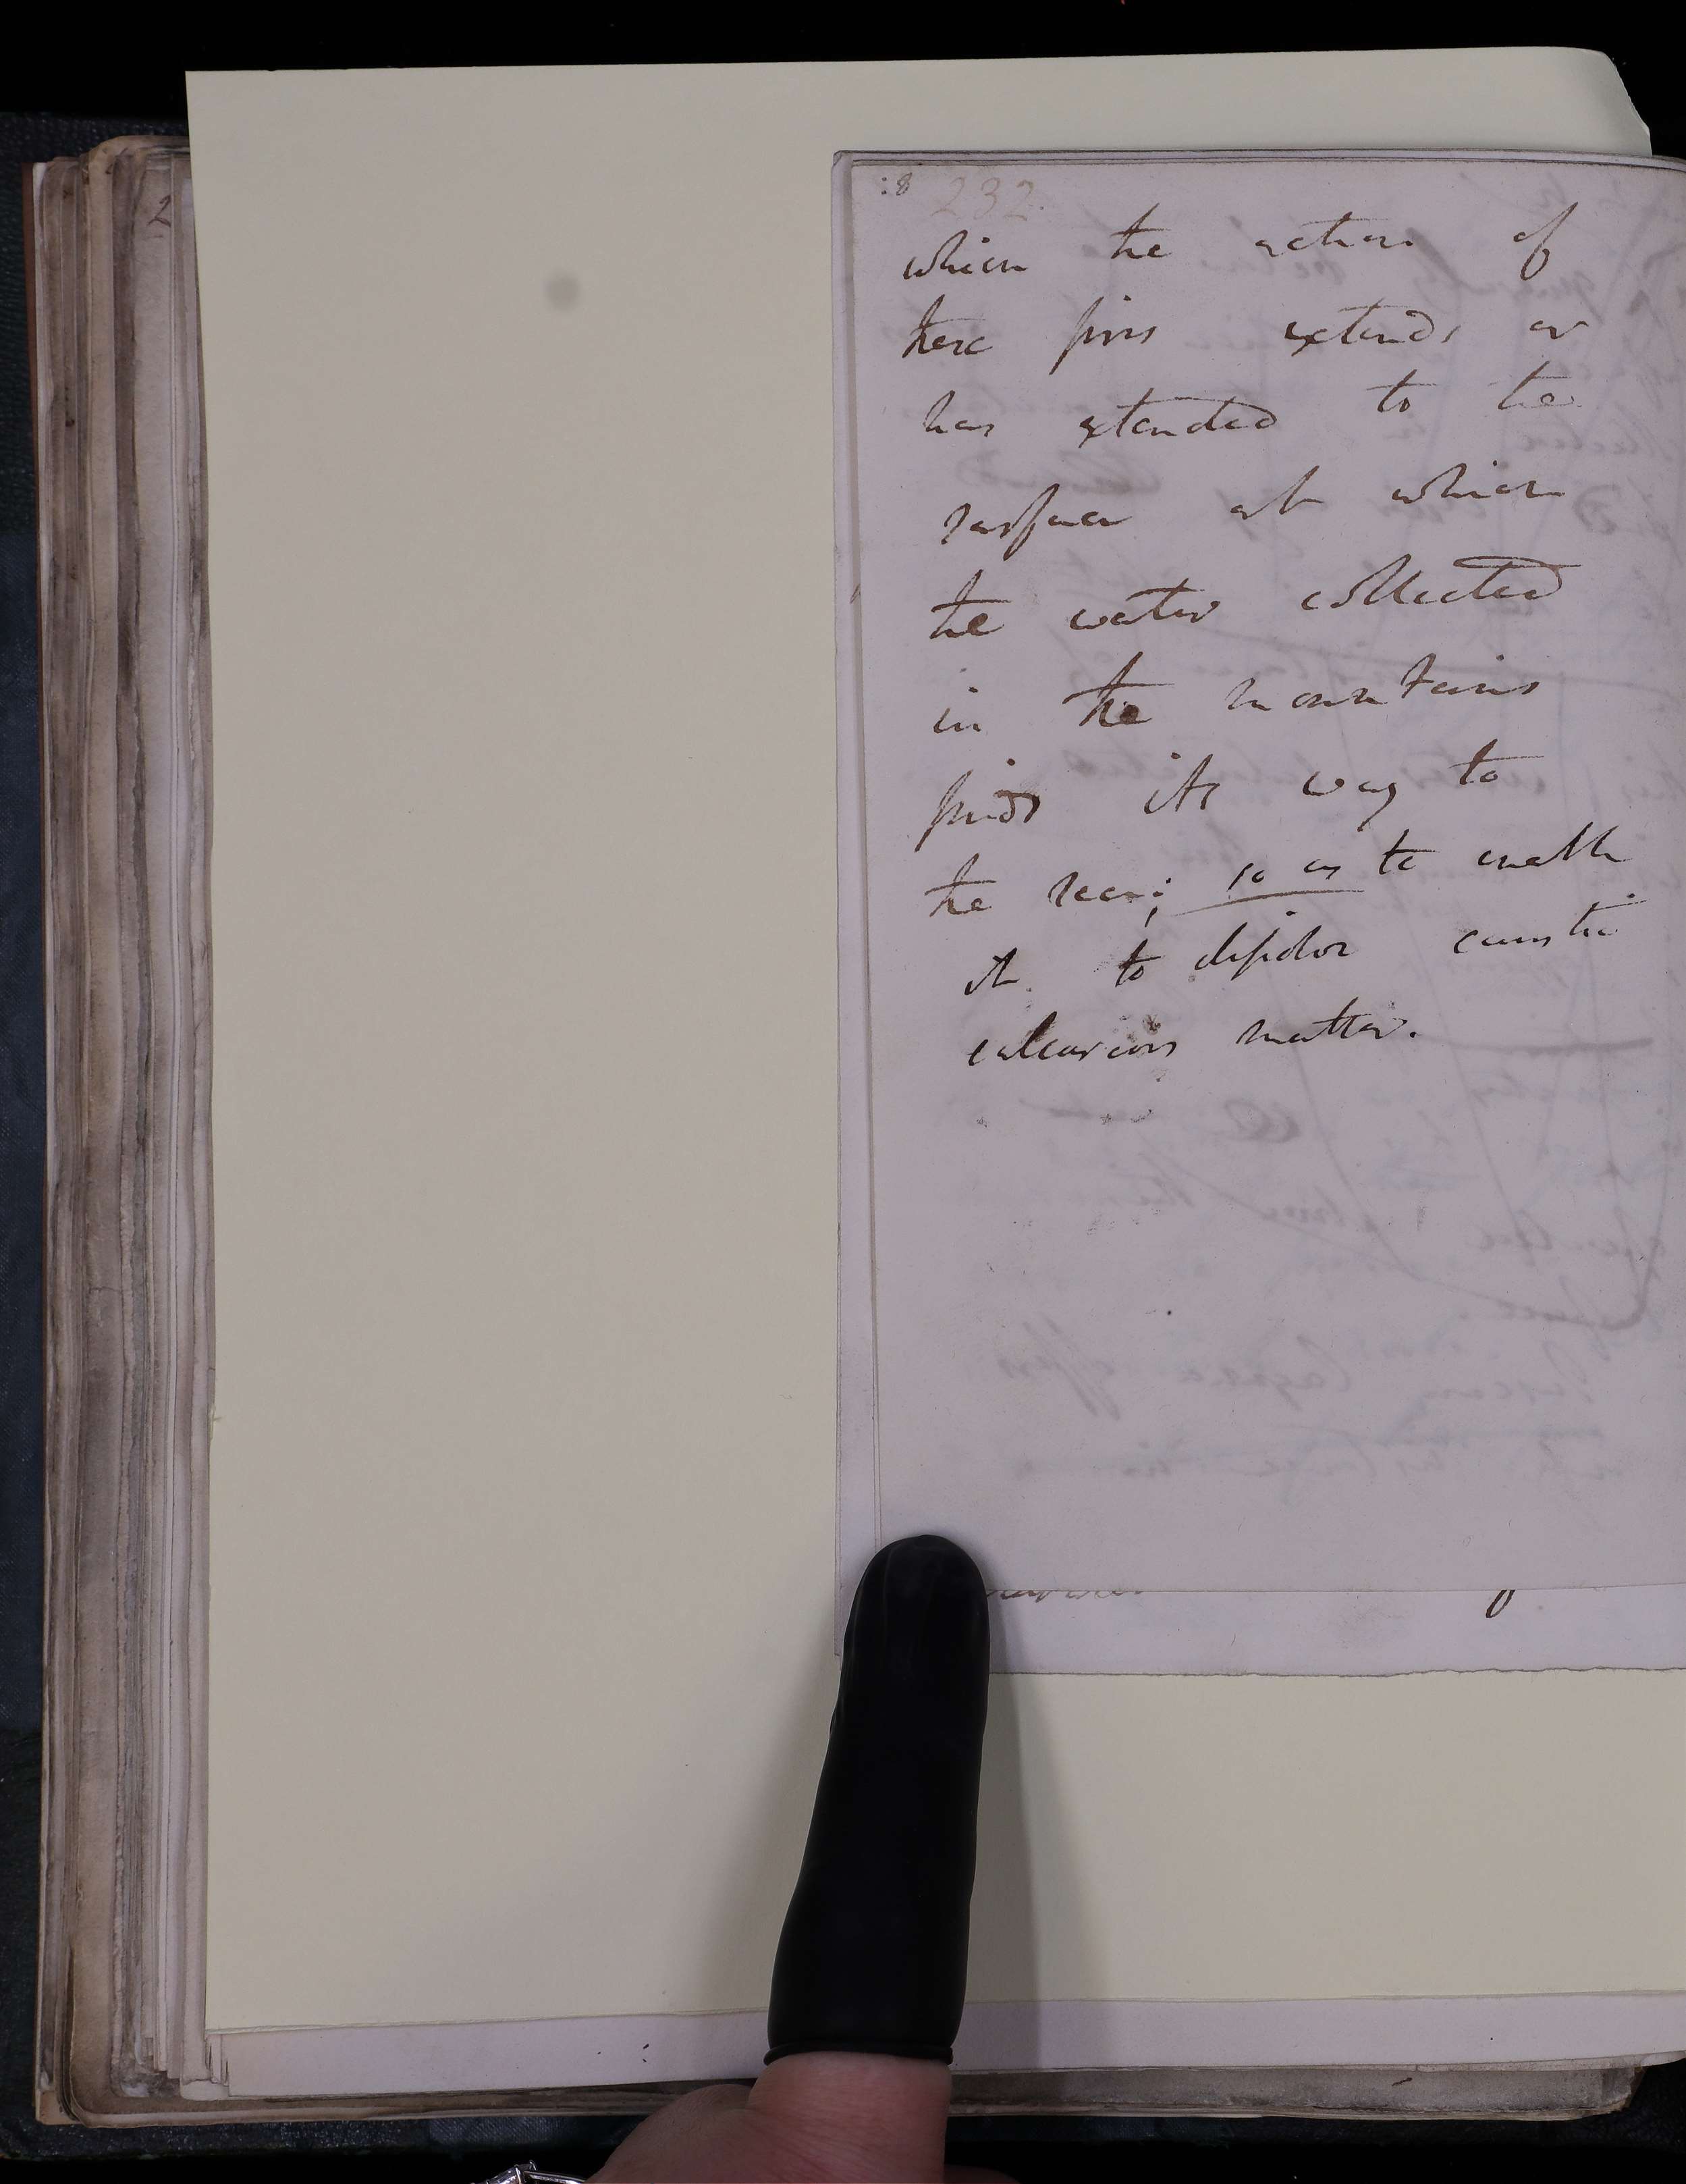 :8 232.
which the action of
these fires extends or
has extended to the
surface at which
the water collected
in the mountains
finds its way to
the sea; so as to enable
it to dissolve caustic
calcareous matter.
2